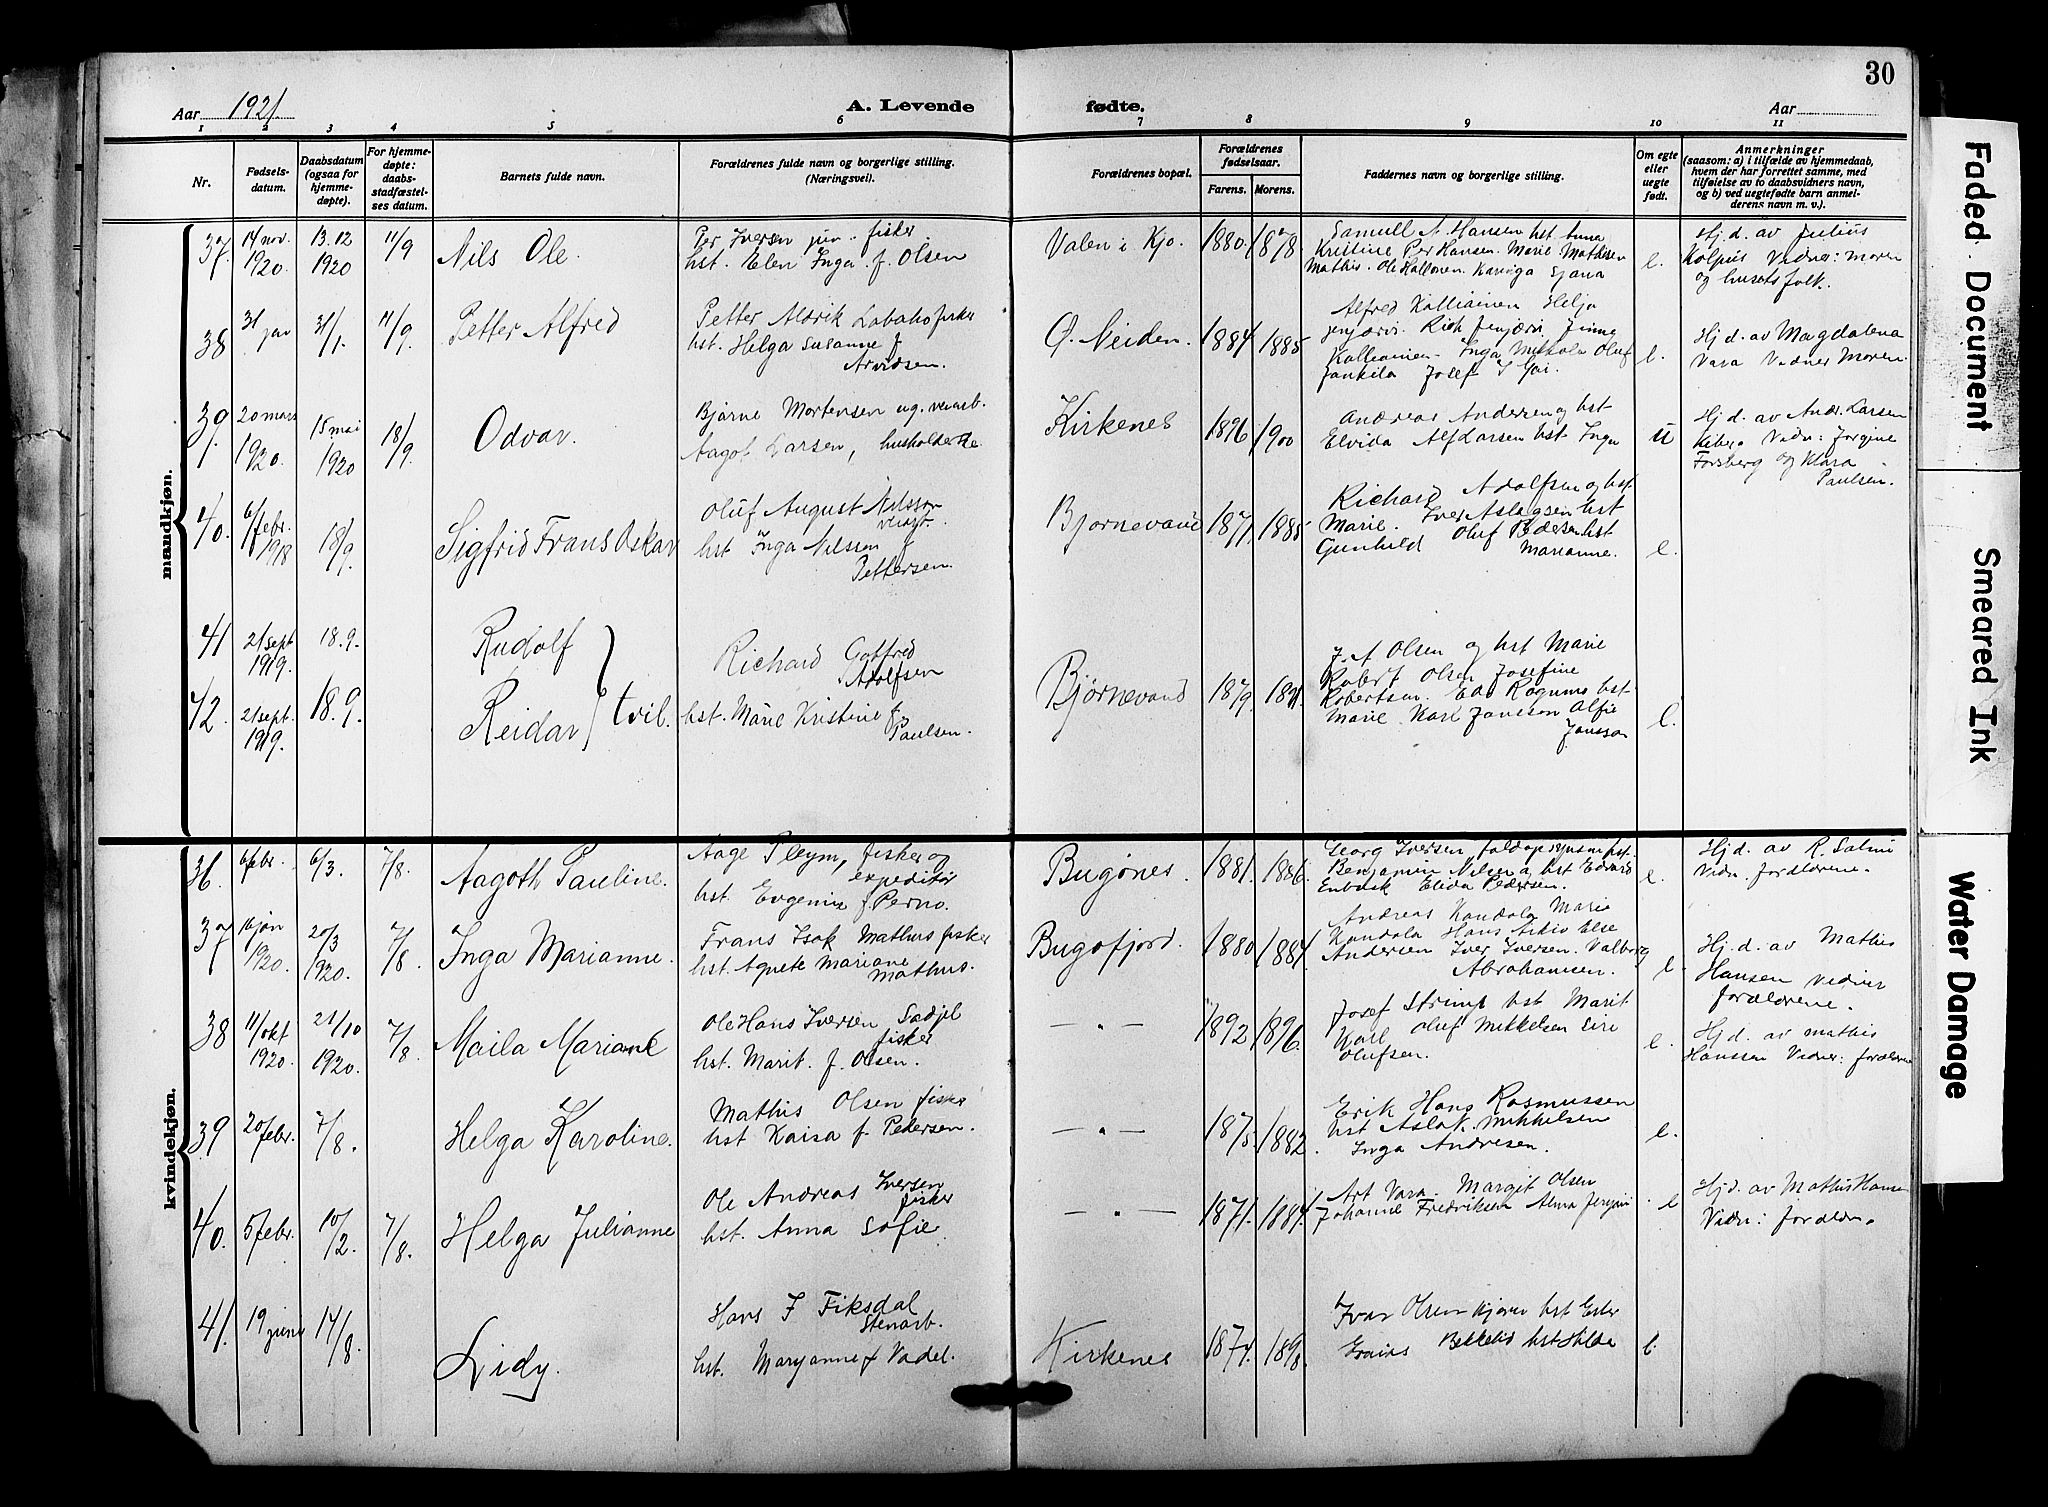 30
Aar 1921. A. Levende fødte. Aar
1 2 3 4 5 6 7 8 9 10 11
Nr. Fødsels-datum. Daabsdatum (ogsaa for hjemme-døpte). For hjemme-døpte: daabs-stadfæstel-ses datum. Barnets fulde navn. Forældrenes fulde navn og borgerlige stilling. (Næringsvei). Forældrenes bopæl. Forældrenes fødselsaar. Farens. Morens. Faddernes navn og borgerlige stilling. Om egte eller uegte født. Anmerkninger (saasom: a) i tilfælde av hjemmedaab, hvem der har forrettet samme, med tilføielse av to daabsvidners navn, og b) ved uegtefødte barn anmel-derens navn m. v.).
mandkjøn.
37. 14 nov. 1920. 13.12 1920 11/9 Nils Ole.
Per Iversen jun. fisker
hst. Elen Inga f. Olsen
Valen i Kjo. 1880. 1878.
Samuell N. Hansen hst Anna
Kristine Per Hansen. Marie Mathisen
Mathis. Ole Halvorsen.
e.
Hj. d. av Julius
Kolpus Vidner: moren
og husets folk.
38 31 jan 31/1. 11/9. Petter Alfred
Petter Aldrik Labahå fisker
hst. Helga Susanne f
Arvidsen.
Ø. Neiden. 1884 1885
Alfred Kalliainen Helja
Kalliainen. Inga Mikkola Oluf
Josef
e.
Hj d. av Magdalena
Vara Vidner Moren.
39. 20 mars 1920. 15 mai 1920 18/9. Odvar.
Bjarne Mortensen ug.
Aagot Larsen, husholderske
Kirkenes 1896 1900
Andreas Andersen og hst
Elvida Alf Larsen hst Inga
u
Hj. d. av Andr. Larsen
Kiberg Vidn: Jorgine
Forsberg og Klara
Paulsen.
40. 6/febr. 1918 18/9. Sigfrid Frans Oskar
Oluf August Nilsson
hst Inga Nilssen f
Pettersen.
Bjørnevand 1871. 1885
Richard Adolfsen og hst.
Marie. Iver Aslagsen hst
Gunhild Oluf Pedersen hst
Marianne.
e.
41 21 sept 1919. 18.9. Rudolf
42. 21 sept. 1919. 18.9. Reidar } tvil.
Richard Gotfred
Adolfsen
hst. Marie Kristine f
Paulsen.
Bjørnevand 1879. 1881.
J. A Olsen og hst Marie
Robert Olsen Josefine
Robertsen. Edv Rognmo hst
Marie. Karl Jansson Alfie
Jansson
e.
kvindekjøn.
36. 6/febr. 6/3. 7/8. Aagoth Pauline.
Aage Pleym, fisker og
expeditør
hst. Evgenie f. Perno.
Bugønes. 1881. 1886.
Georg Iversen
Benjamin Nilsen og hst Edvard
Enbusk Elida Pedersen.
e.
Hj d. av R. Salmi
Vidn. forældrene.
37 1920. 20/3 1920. 7/8. Inga Marianne.
Frans Isak Mathus fisker
hst. Agnete Mariane
Mathus.
Bugøfjord. 1880 1884.
Andreas Kandola Marie
Kandola Hans Else
Andersen Iver Iversen. Valborg
Abrahamsen.
e.
Hj. d. av Mathis
Hansen Vidner
forældrene.
38 11/okt 1920. 21/10 1920. 7/8. Maila Mariane
Ole Hans Iversen Sadjel
fisker
hst. Marit. f. Olsen.
— " — 1892 1896.
Josef Strimp hst Marit
Karl Oluf Mikkelsen Siri
Olufsen.
e.
Hj. d. av mathis
Hanssen Vidner: forældrene
39 20/febr. 7/8. Helga Karoline.
Mathis Olsen fisker
hst Kaisa f. Pedersen.
— " — 1875. 1882.
Erik Hans Rasmussen
hst Aslak. Mikkelsen
Inga Andresen.
e.
40. 5/febr. 10/2. 7/8. Helga Julianne
Ole Andreas Iversen
fisker
hst. Anna Sofie.
— " — 1871. 1884.
Art Vara. Margit Olsen
Johanne Fredriksen Alma
e
Hj d. av Mathis Hansen
Vidn: forældr.
41. 19 juni 14/8. Lidy.
Hans J Fiksdal
Stenarb.
hst. Maryanne f Vadel.
Kirkenes 1874. 1898.
Ivar Olsen Kjøren hst Ester
Bekkelid hst Hilda
e.
Faded Document
Smeared Ink
Water Damage